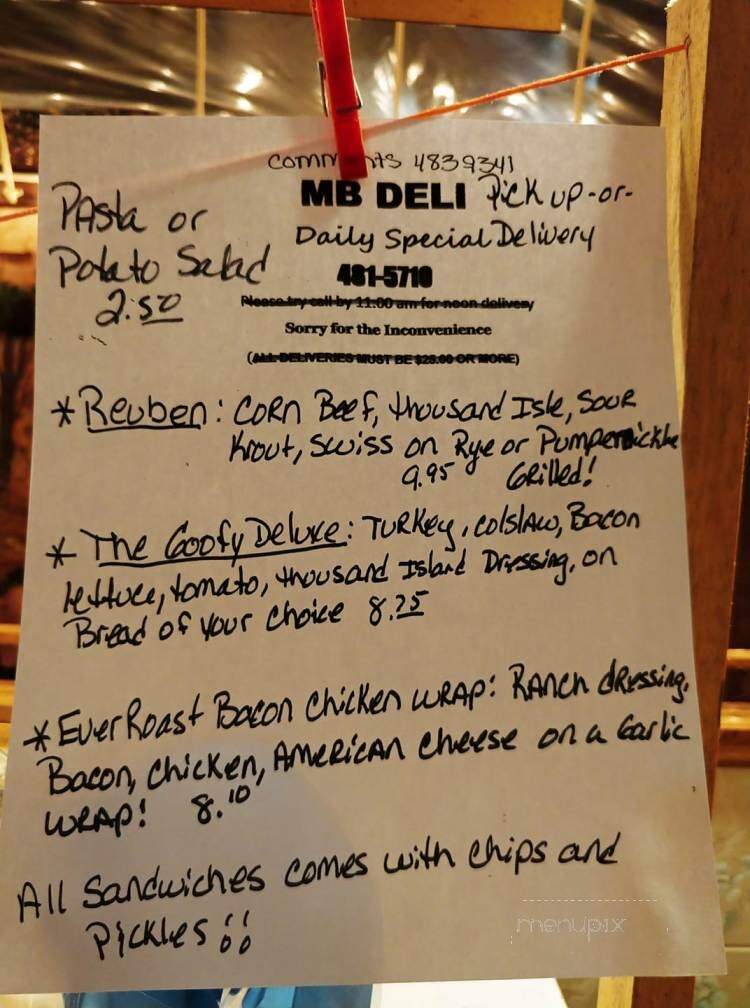 comments 4839341
MB DELI Pick up -or-
Daily Special Delivery
481-5710
Please try call by 11:00 am for noon delivery
Sorry for the Inconvenience
(ALL DELIVERIES MUST BE $25.00 OR MORE)
Pasta or
Potato Salad
2.50
* Reuben: Corn Beef, thousand Isle, Sour
Krout, Swiss on Rye or Pumpernickle
9.95 Grilled!
* The Goofy Deluxe: Turkey, colslaw, Bacon
lettuce, tomato, thousand Island Dressing, on
Bread of your choice 8.25
* EverRoast Bacon Chicken WRAP: RANCH dressing,
Bacon, chicken, American cheese on a Garlic
WRAP! 8.10
All Sandwiches comes with chips and
Pickles !!
menupix